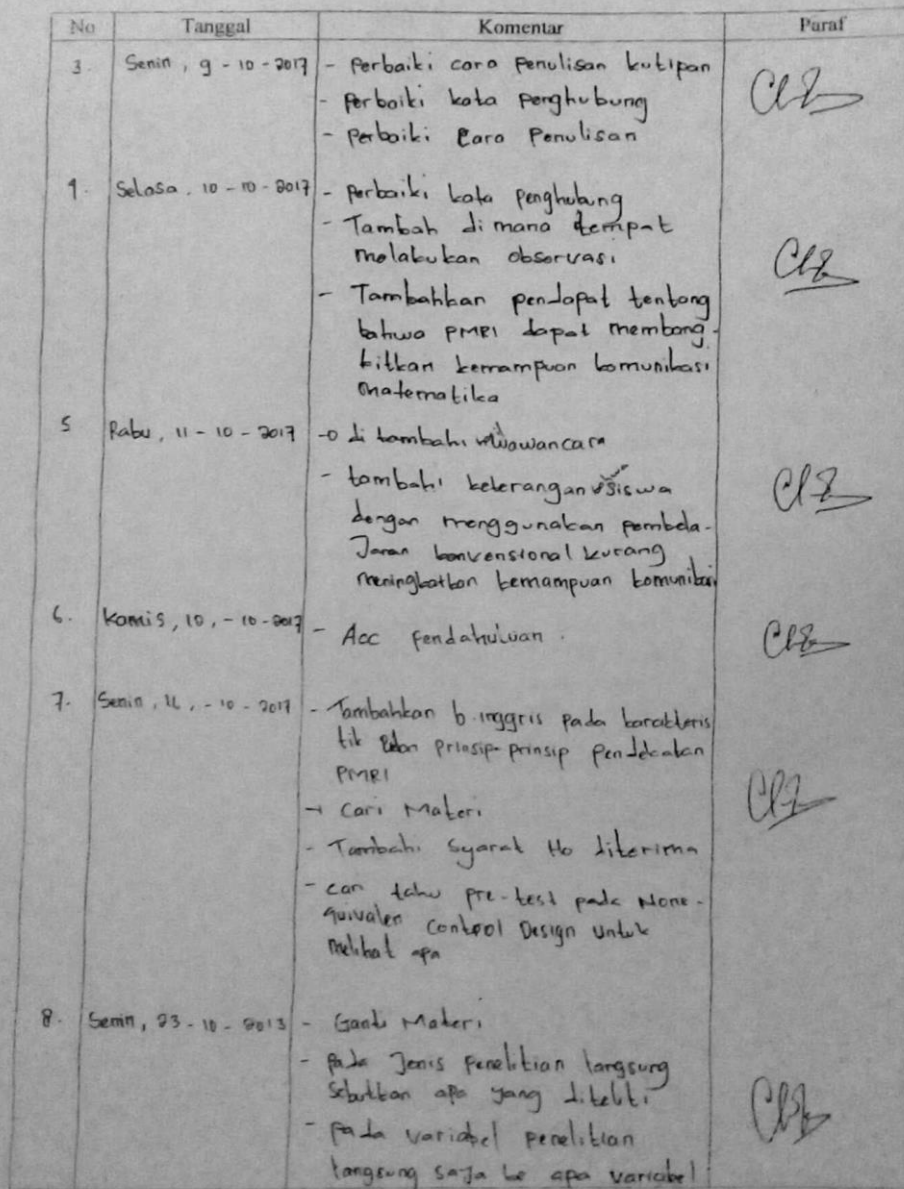 No Tanggal Komentar Paraf
3. Senin, 9 - 10 - 2017 - Perbaiki cara Penulisan kutipan
- Perbaiki kata penghubung
- Perbaiki Cara Penulisan
4. Selasa, 10 - 10 - 2017 - Perbaiki kata penghubung
- Tambah di mana tempat
melakukan observasi
- Tambahkan pendapat tentang
bahwa PMRI dapat membang-
kitkan kemampuan komunikasi
matematika
5 Rabu, 11 - 10 - 2017 - di tambahi wawancara
- tambahi keterangan siswa
dengan menggunakan pembela-
Jaran konvensional kurang
meningkatkan kemampuan komunikasi
6. Kamis, - 10 - 2017 - Acc Pendahuluan.
7. Senin, - 10 - 2017 - Tambahkan b. inggris pada karakteris
tik dan prinsip-prinsip pendekatan
PMRI
- Cari Materi
- Tambahi Syarat Ho diterima
- cari tahu pre-test pada None-
quivalen Control Design untuk
melihat apa
8. Senin, 23 - 10 - 2013 - Ganti Materi
- pada Jenis Penelitian langsung
Sebutkan apa yang diteliti
- pada variabel penelitian
langsung saja ke apa variabel